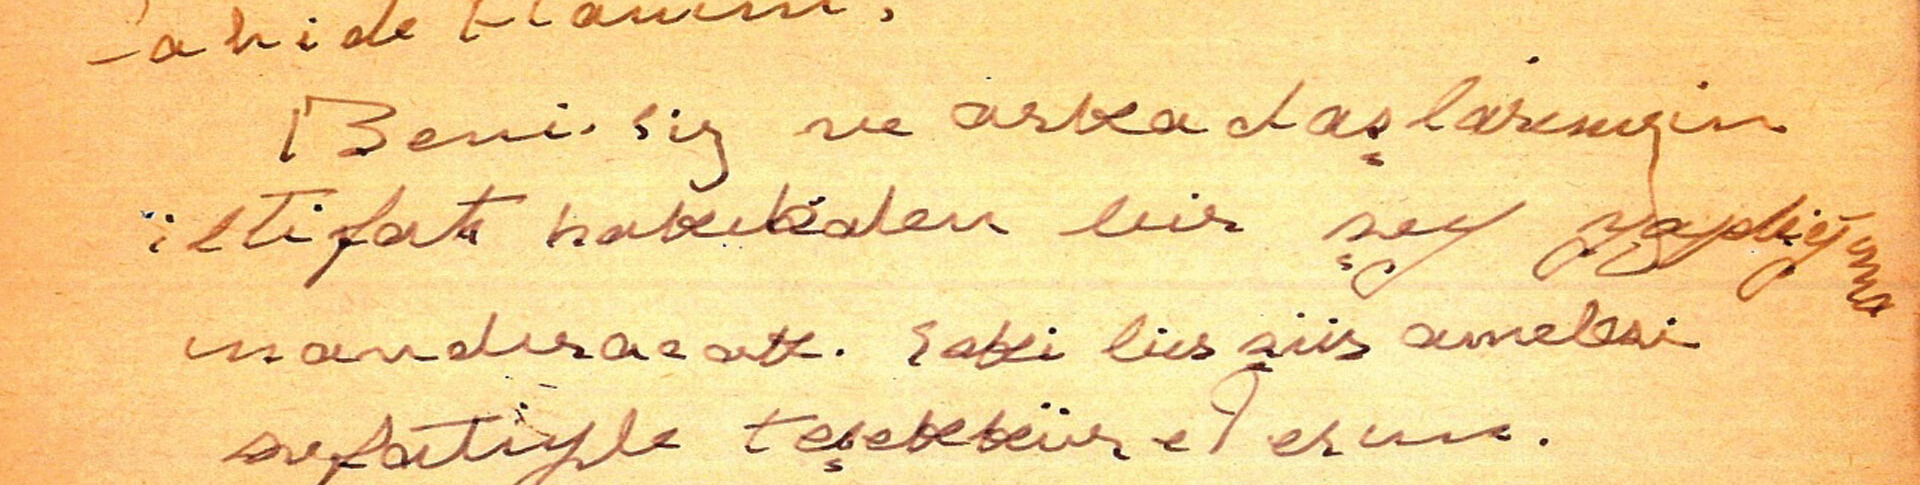 Hanım,
Beni siz ve arkadaşlarınızın
iltifatı hakikaten bir şey yapdığıma
inandıracak. Eski bir şiir amelesi
sıfatiyle teşekkür ederim.